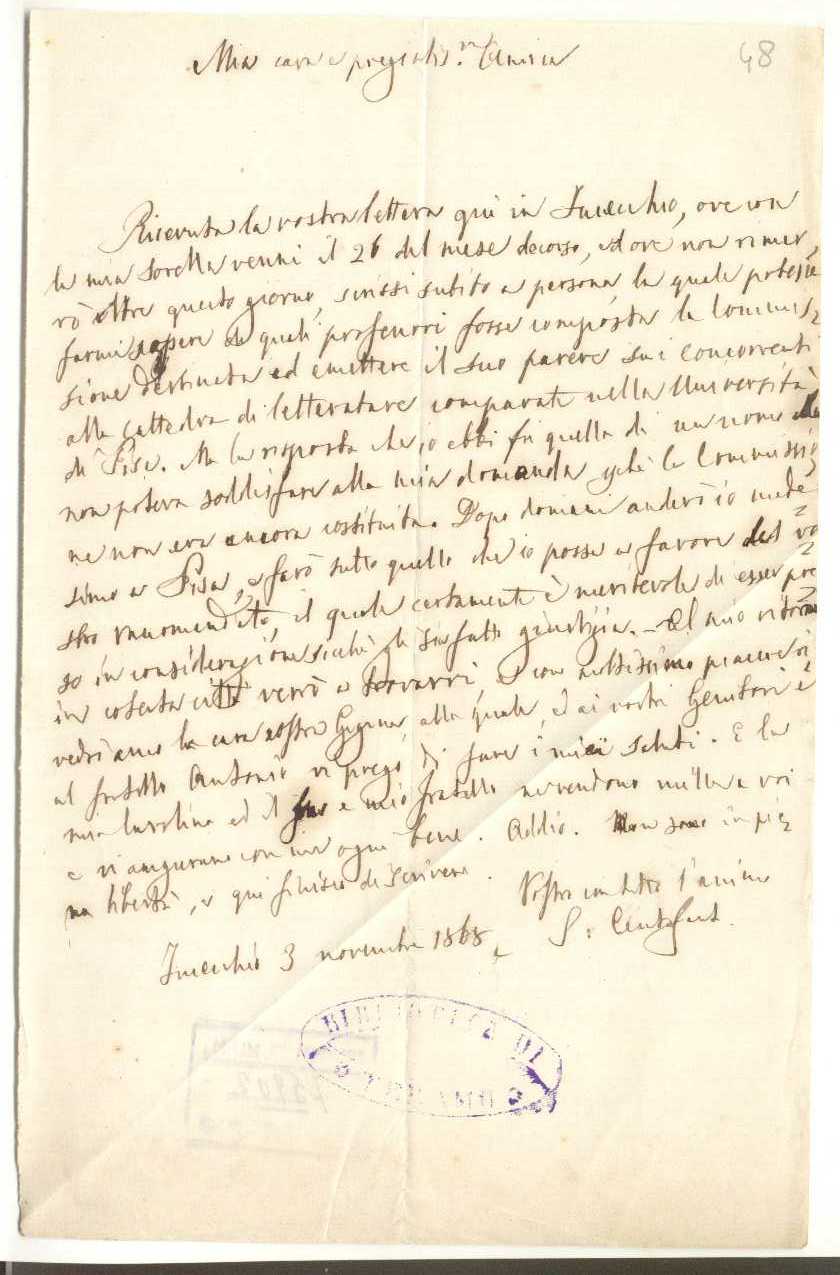 48
Mia cara e pregiatis.ma Amica
Ricevuta la vostra lettera qui in Fucecchio, ove con
la mia sorella venni il 26 del mese decorso, ed ove non rimar,
rò oltre questo giorno, scrissi subito a persona, la quale potesse
farmi sapere da quali professori fosse composta la Commis,
sione destinata ad emettere il suo parere sui concorrenti
alla cattedra di letterature comparate nella Università
di Pisa. Ma la risposta che io ebbi fu quella di un uomo che
non poteva soddisfare alla mia domanda, pchè la Commissio,
ne non era ancora costituita. Dopo domani anderò io mede,
simo a Pisa, e farò tutto quello che io possa a favore del vo,
stro raccomandato, il quale certamente è meritevole di esser pre,
so in considerazione sicchè gli sia fatta giustizia. – Al mio ritorno
in cotesta città verrò a trovarvi, e con moltissimo piacere ri,
vedremo la cara vostra Giannina, alla quale, ed ai vostri Genitori e
al fratello Antonio vi prego di fare i miei saluti. E la
mia Carolina ed il suo e mio fratello ne rendono mille a voi
e vi augurano con me ogni bene. Addio. Non sono in pie,
na libertà, e qui finisco di scrivere.
Vostro con tutto l'animo
S: Centofanti.
Fucecchio 3 novembre 1868,
BIBLIOTECA DI